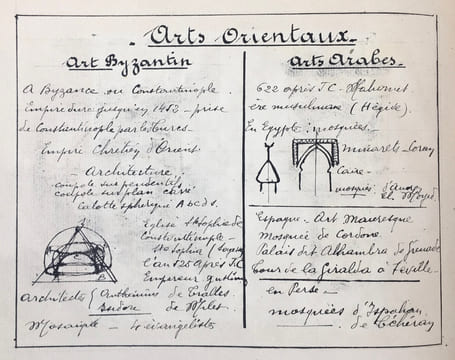 Arts Orientaux.
Art Byzantin
A Byzance ou Constantinople.
Empire dure jusqu'en 1453 - prise
de Constantinople par les Turcs.
Empire Chrétien d'Orient
Architecture
coupole sur pendentifs
coupole sur plan carré
calotte sphérique ABCDS.
Eglise Ste Sophie de
Constantinople
Ste Sophia
l'an 525 après JC
Empereur
Architectes { Anthémius de Tralles
Isidore de Milet.
Mosaïque - 4 évangélistes
Arts Arabes.
622 après JC - Mahomet
ère musulmane (Hégire).
En Egypte: mosquées.
minarets
Caire
mosquées d'amrou
Espagne - Art Mauresque
Mosquée de Cordoue.
Palais de l'Alhambra de Grenade
Tour de la Giralda à Séville.
en Perse -
mosquées d'Ispahan
de Téhéran